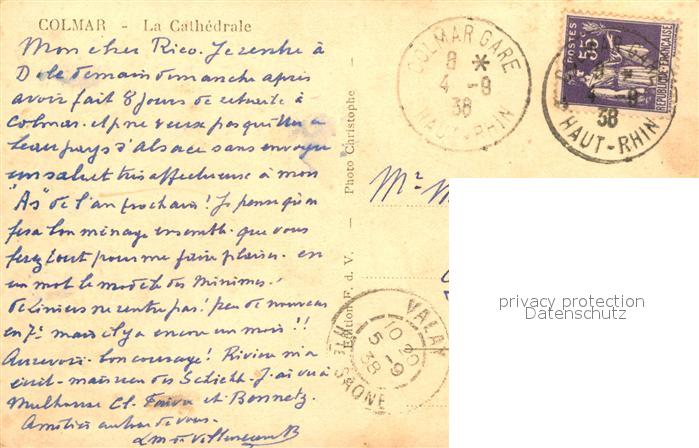 COLMAR - La Cathédrale
Mon cher Rico. Je rentre à
Dole demain dimanche après
avoir fait 8 jours de retraite à
Colmar. et je ne veux pas quitter
beau pays d'Alsace sans envoyer
un salut très affectueux à mon
"As" de l'an prochain! Je pense qu'on
fera bon ménage ensemble. que vous
ferez tout pour me faire plaisir. en
un mot le modèle des Minimes.
de Liniers ne rentre pas! peu de nouveaux
en 7e mais il y a encore un mois!!
Au revoir. bon courage! Rivière m'a
écrit - mais rien des J'ai vu à
Mulhouse Cl. et
Amitiés autour de vous.
Edition F. d. V. - Photo Christophe
COLMAR GARE
8 *
4 -9
38
HAUT-RHIN
POSTES
55c
REPUBLIQUE FRANÇAISE
COLMAR GARE
8 *
4 -9
38
HAUT-RHIN
Mr M
VALAY
10 20
5 -9
38
HTE SAONE
privacy protection
Datenschutz